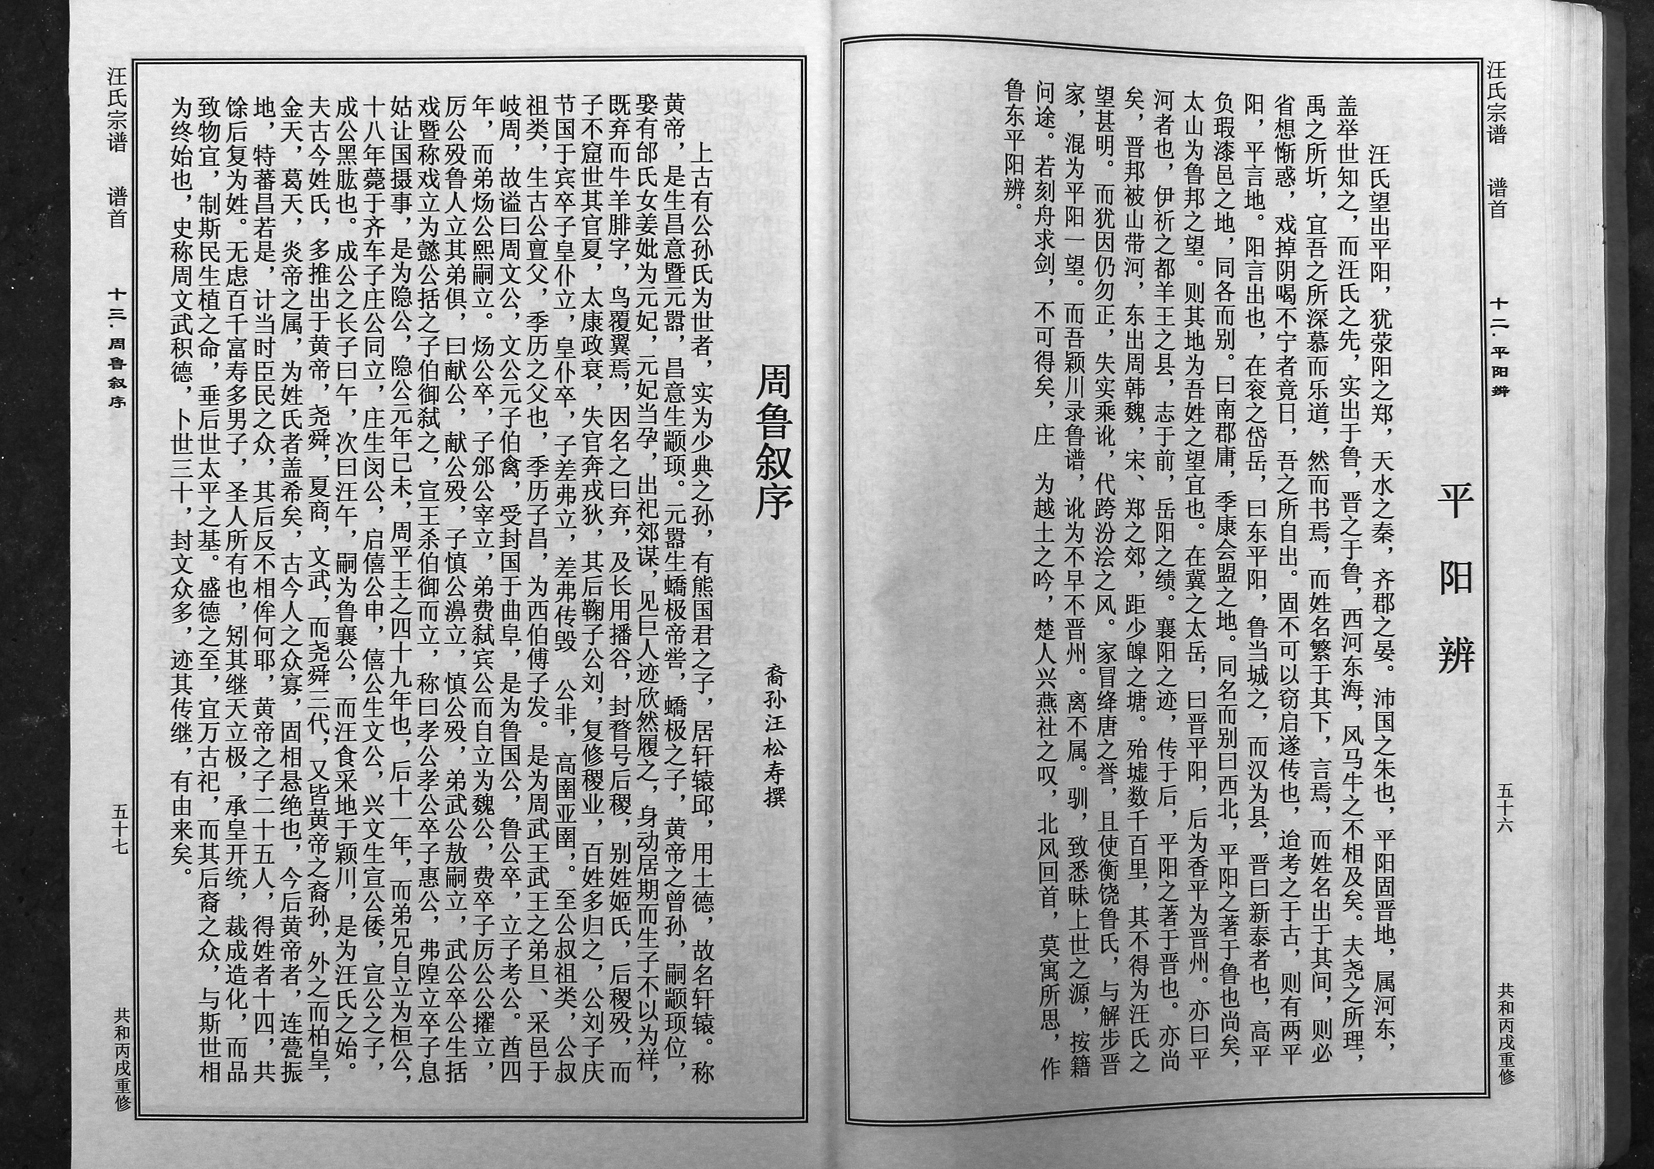 汪氏宗谱 谱首 十二·平阳辨 五十六 共和丙戌重修
平阳辨
汪氏望出平阳，犹荥阳之郑，天水之秦，齐郡之晏。沛国之朱也，平阳固晋地，属河东，
盖举世知之，而汪氏之先，实出于鲁，晋之于鲁，西河东海，风马牛之不相及矣。夫尧之所理，
禹之所圻，宜吾之所深慕而乐道，然而书焉，而姓名繁于其下，言焉，而姓名出于其间，则必
省想惭惑，戏掉阴喝不宁者竟日，吾之所自出。固不可以窃启遂传也，迨考之于古，则有两平
阳，平言地。阳言出也，在衮之岱岳，曰东平阳，鲁当城之，而汉为县，晋曰新泰者也，高平
负瑕漆邑之地，同各而别。曰南郡庸，季康会盟之地。同名而别曰西北，平阳之著于鲁也尚矣，
太山为鲁邦之望。则其地为吾姓之望宜也。在冀之太岳，曰晋平阳，后为香平为晋州。亦曰平
河者也，伊祈之都羊王之县，志于前，岳阳之绩。襄阳之迹，传于后，平阳之著于晋也。亦尚
矣，晋邦被山带河，东出周韩魏，宋、郑之郊，距少皞之塘。殆墟数千百里，其不得为汪氏之
望甚明。而犹因仍勿正，失实乘讹，代跨汾浍之风。家冒绛唐之誉，且使衡饶鲁氏，与解步晋
家，混为平阳一望。而吾颖川录鲁谱，讹为不早不晋州。离不属。驯，致悉昧上世之源，按籍
问途。若刻舟求剑，不可得矣，庄 为越土之吟，楚人兴燕社之叹，北风回首，莫寓所思，作
鲁东平阳辨。
周鲁叙序
裔孙汪松寿撰
上古有公孙氏为世者，实为少典之孙，有熊国君之子，居轩辕邱，用土德，故名轩辕。称
黄帝，是生昌意暨元嚣，昌意生颛顼。元嚣生蟜极帝喾，蟜极之子，黄帝之曾孙，嗣颛顼位，
娶有邰氏女姜妣为元妃，元妃当孕，出祀郊谋，见巨人迹欣然履之，身动居期而生子不以为祥，
既弃而牛羊腓字，鸟覆翼焉，因名之曰弃，及长用播谷，封瞀号后稷，别姓姬氏，后稷殁，而
子不窟世其官夏，太康政衰，失官奔戎狄，其后鞠子公刘，复修稷业，百姓多归之，公刘子庆
节国于宾卒子皇仆立，皇仆卒，子差弗立，差弗传毁 公非，高圉亚圉，。至公叔祖类，公叔
祖类，生古公亶父，季历之父也，季历子昌，为西伯傅子发。是为周武王武王之弟旦、采邑于
岐周，故谥曰周文公，文公元子伯禽，受封国于曲阜，是为鲁国公，鲁公卒，立子考公。酋四
年，而弟炀公熙嗣立。炀公卒，子颁公宰立，弟费弑宾公而自立为魏公，费卒子厉公公擢立，
厉公殁鲁人立其弟俱，曰献公，献公殁，子慎公濞立，慎公殁，弟武公敖嗣立，武公卒公生括
戏暨称戏立为懿公括之子伯御弑之，宣王杀伯御而立，称曰孝公孝公卒子惠公，弗隍立卒子息
姑让国摄事，是为隐公，隐公元年己未，周平王之四十九年也，后十一年，而弟兄自立为桓公，
十八年薨于齐车子庄公同立，庄生闵公，启僖公申，僖公生文公，兴文生宣公倭，宣公之子，
成公黑肱也。成公之长子曰午，次曰汪午，嗣为鲁襄公，而汪食采地于颖川，是为汪氏之始。
夫古今姓氏，多推出于黄帝，尧舜，夏商，文武，而尧舜三代，又皆黄帝之裔孙，外之而柏皇，
金天，葛天，炎帝之属，为姓氏者盖希矣，古今人之众寡，固相悬绝也，今后黄帝者，连甍振
地，特蕃昌若是，计当时臣民之众，其后反不相侔何耶，黄帝之子二十五人，得姓者十四，共
馀后复为姓。无虑百千富寿多男子，圣人所有也，矧其继天立极，承皇开统，裁成造化，而品
致物宜，制斯民生植之命，垂后世太平之基。盛德之至，宜万古祀，而其后裔之众，与斯世相
为终始也，史称周文武积德，卜世三十，封文众多，迹其传继，有由来矣。
汪氏宗谱 谱首 十三·周鲁叙序 五十七 共和丙戌重修